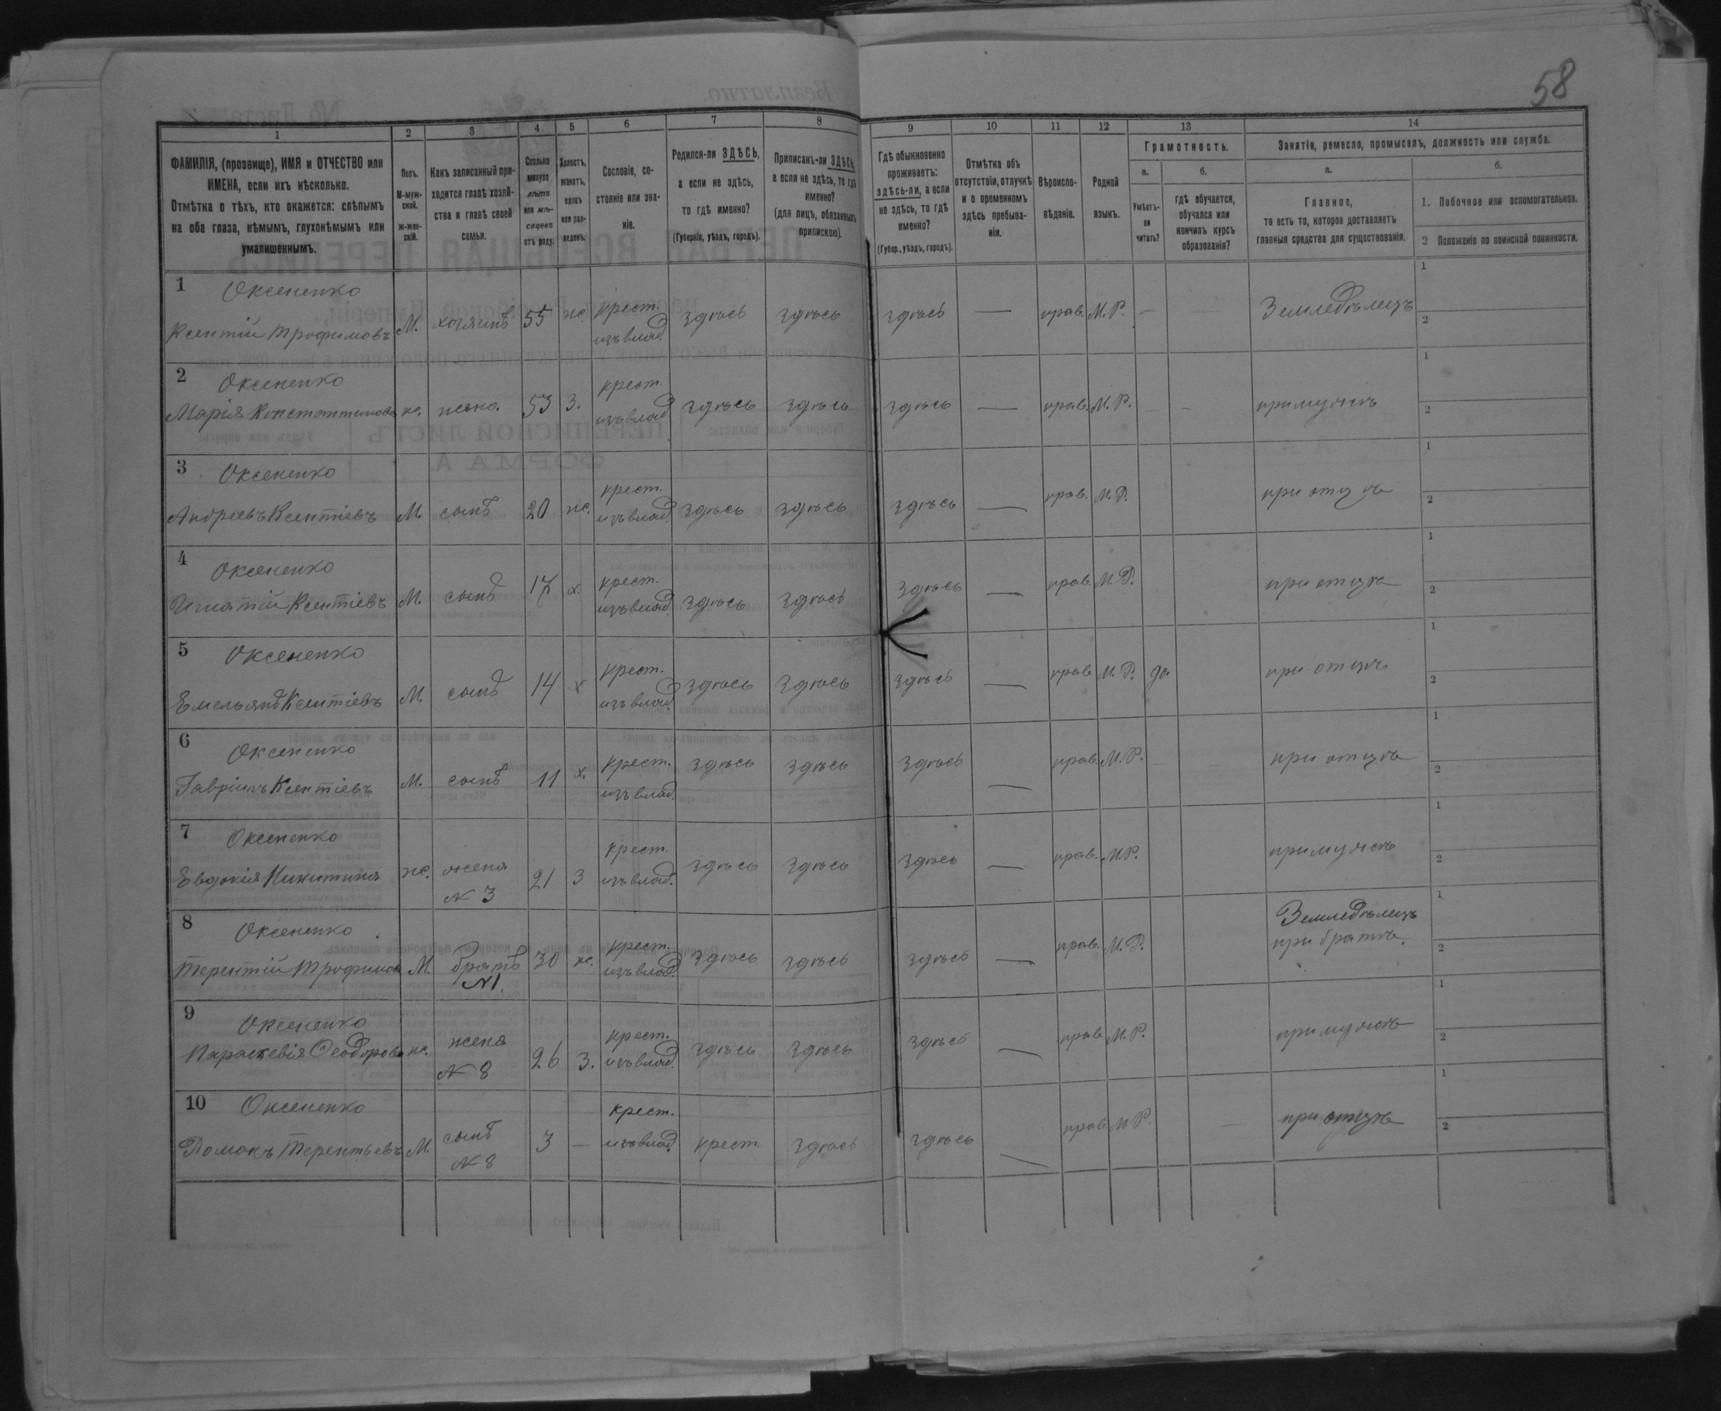 58
1 2 3 4 5 6 7 8 9 10 11 12 13 14
ФАМИЛІЯ, (прозвище), ИМЯ и ОТЧЕСТВО или
ИМЕНА, если ихъ нѣсколько.
Отмѣтка о тѣхъ, кто окажется: слѣпымъ
на оба глаза, нѣмымъ, глухонѣмымъ или
умалишеннымъ.
Полъ.
М-муж-
ской.
Ж-жен-
скій.
Какъ записанный при-
ходится главѣ хозяй-
ства и главѣ своей
семьи.
Сколько
минуло
лѣтъ
или мѣ-
сяцевъ
отъ роду.
Холостъ,
женатъ,
вдовъ
или раз-
веденъ.
Сословіе, со-
стояніе или зва-
ніе.
Родился-ли ЗДѢСЬ,
а если не здѣсь,
то гдѣ именно?
(Губернія, уѣздъ, городъ).
Приписанъ-ли ЗДѢСЬ,
а если не здѣсь, то гдѣ
именно?
(для лицъ, обязанныхъ
припискою).
Гдѣ обыкновенно
проживаетъ:
здѣсь-ли, а если
не здѣсь, то гдѣ
именно?
(Губер., уѣздъ, городъ).
Отмѣтка объ
отсутствіи, отлучкѣ
и о временномъ
здѣсь пребыва-
ніи.
Вѣроиспо-
вѣданіе.
Родной
языкъ.
Грамотность.
а.
Умѣетъ-
ли
читать?
б.
гдѣ обучается,
обучался или
кончилъ курсъ
образованія?
Занятія, ремесло, промыселъ, должность или служба.
а.
Главное,
то есть то, которое доставляетъ
главныя средства для существованія.
б.
1. Побочное или вспомогательное.
2 Положеніе по воинской повинности.
1 Оксененко
Ксентій Трофимовъ М. хозяинъ 55 ж. крест. изъ влад. здѣсь здѣсь здѣсь — прав. М.Р. — — Земледѣлецъ 1 2
2 Оксененко
Марія Константинова ж. жена. 53 З. крест. изъ влад. здѣсь здѣсь здѣсь — прав. М.Р. — — при мужѣ 1 2
3 Оксененко
Андреевъ Ксентіевъ М. сынъ 20 ж. крест. изъ влад. здѣсь здѣсь здѣсь — прав. М.Р. при отцѣ 1 2
4 Оксененко
Игнатій Ксентіевъ М. сынъ 17 х крест. изъ влад. здѣсь здѣсь здѣсь — прав. М.Р. при отцѣ 1 2
5 Оксененко
Емельянъ Ксентіевъ М. сынъ 14 х крест. изъ влад. здѣсь здѣсь здѣсь — прав. М.Р. да при отцѣ 1 2
6 Оксененко
Гавріилъ Ксентіевъ М. сынъ 11 х. крест. изъ влад. здѣсь здѣсь здѣсь — прав. М.Р. при отцѣ 1 2
7 Оксененко
Евдокія Никитина ж. жена N 3 21 З крест. изъ влад. здѣсь здѣсь здѣсь — прав. М.Р. при мужѣ 1 2
8 Оксененко
Терентій Трофимовъ М. братъ N1. 30 ж. крест. изъ влад. здѣсь здѣсь здѣсь — прав. М.Р. Земледѣлецъ при братѣ. 1 2
9 Оксененко
Параскевія Ѳеодорова ж. жена N 8 26 З. крест. изъ влад. здѣсь здѣсь здѣсь — прав. М.Р. при мужѣ 1 2
10 Оксененко
Терентьевъ М. сынъ N 8 3 — крест. изъ влад. крест. здѣсь здѣсь — прав. М.Р. — при отцѣ 1 2